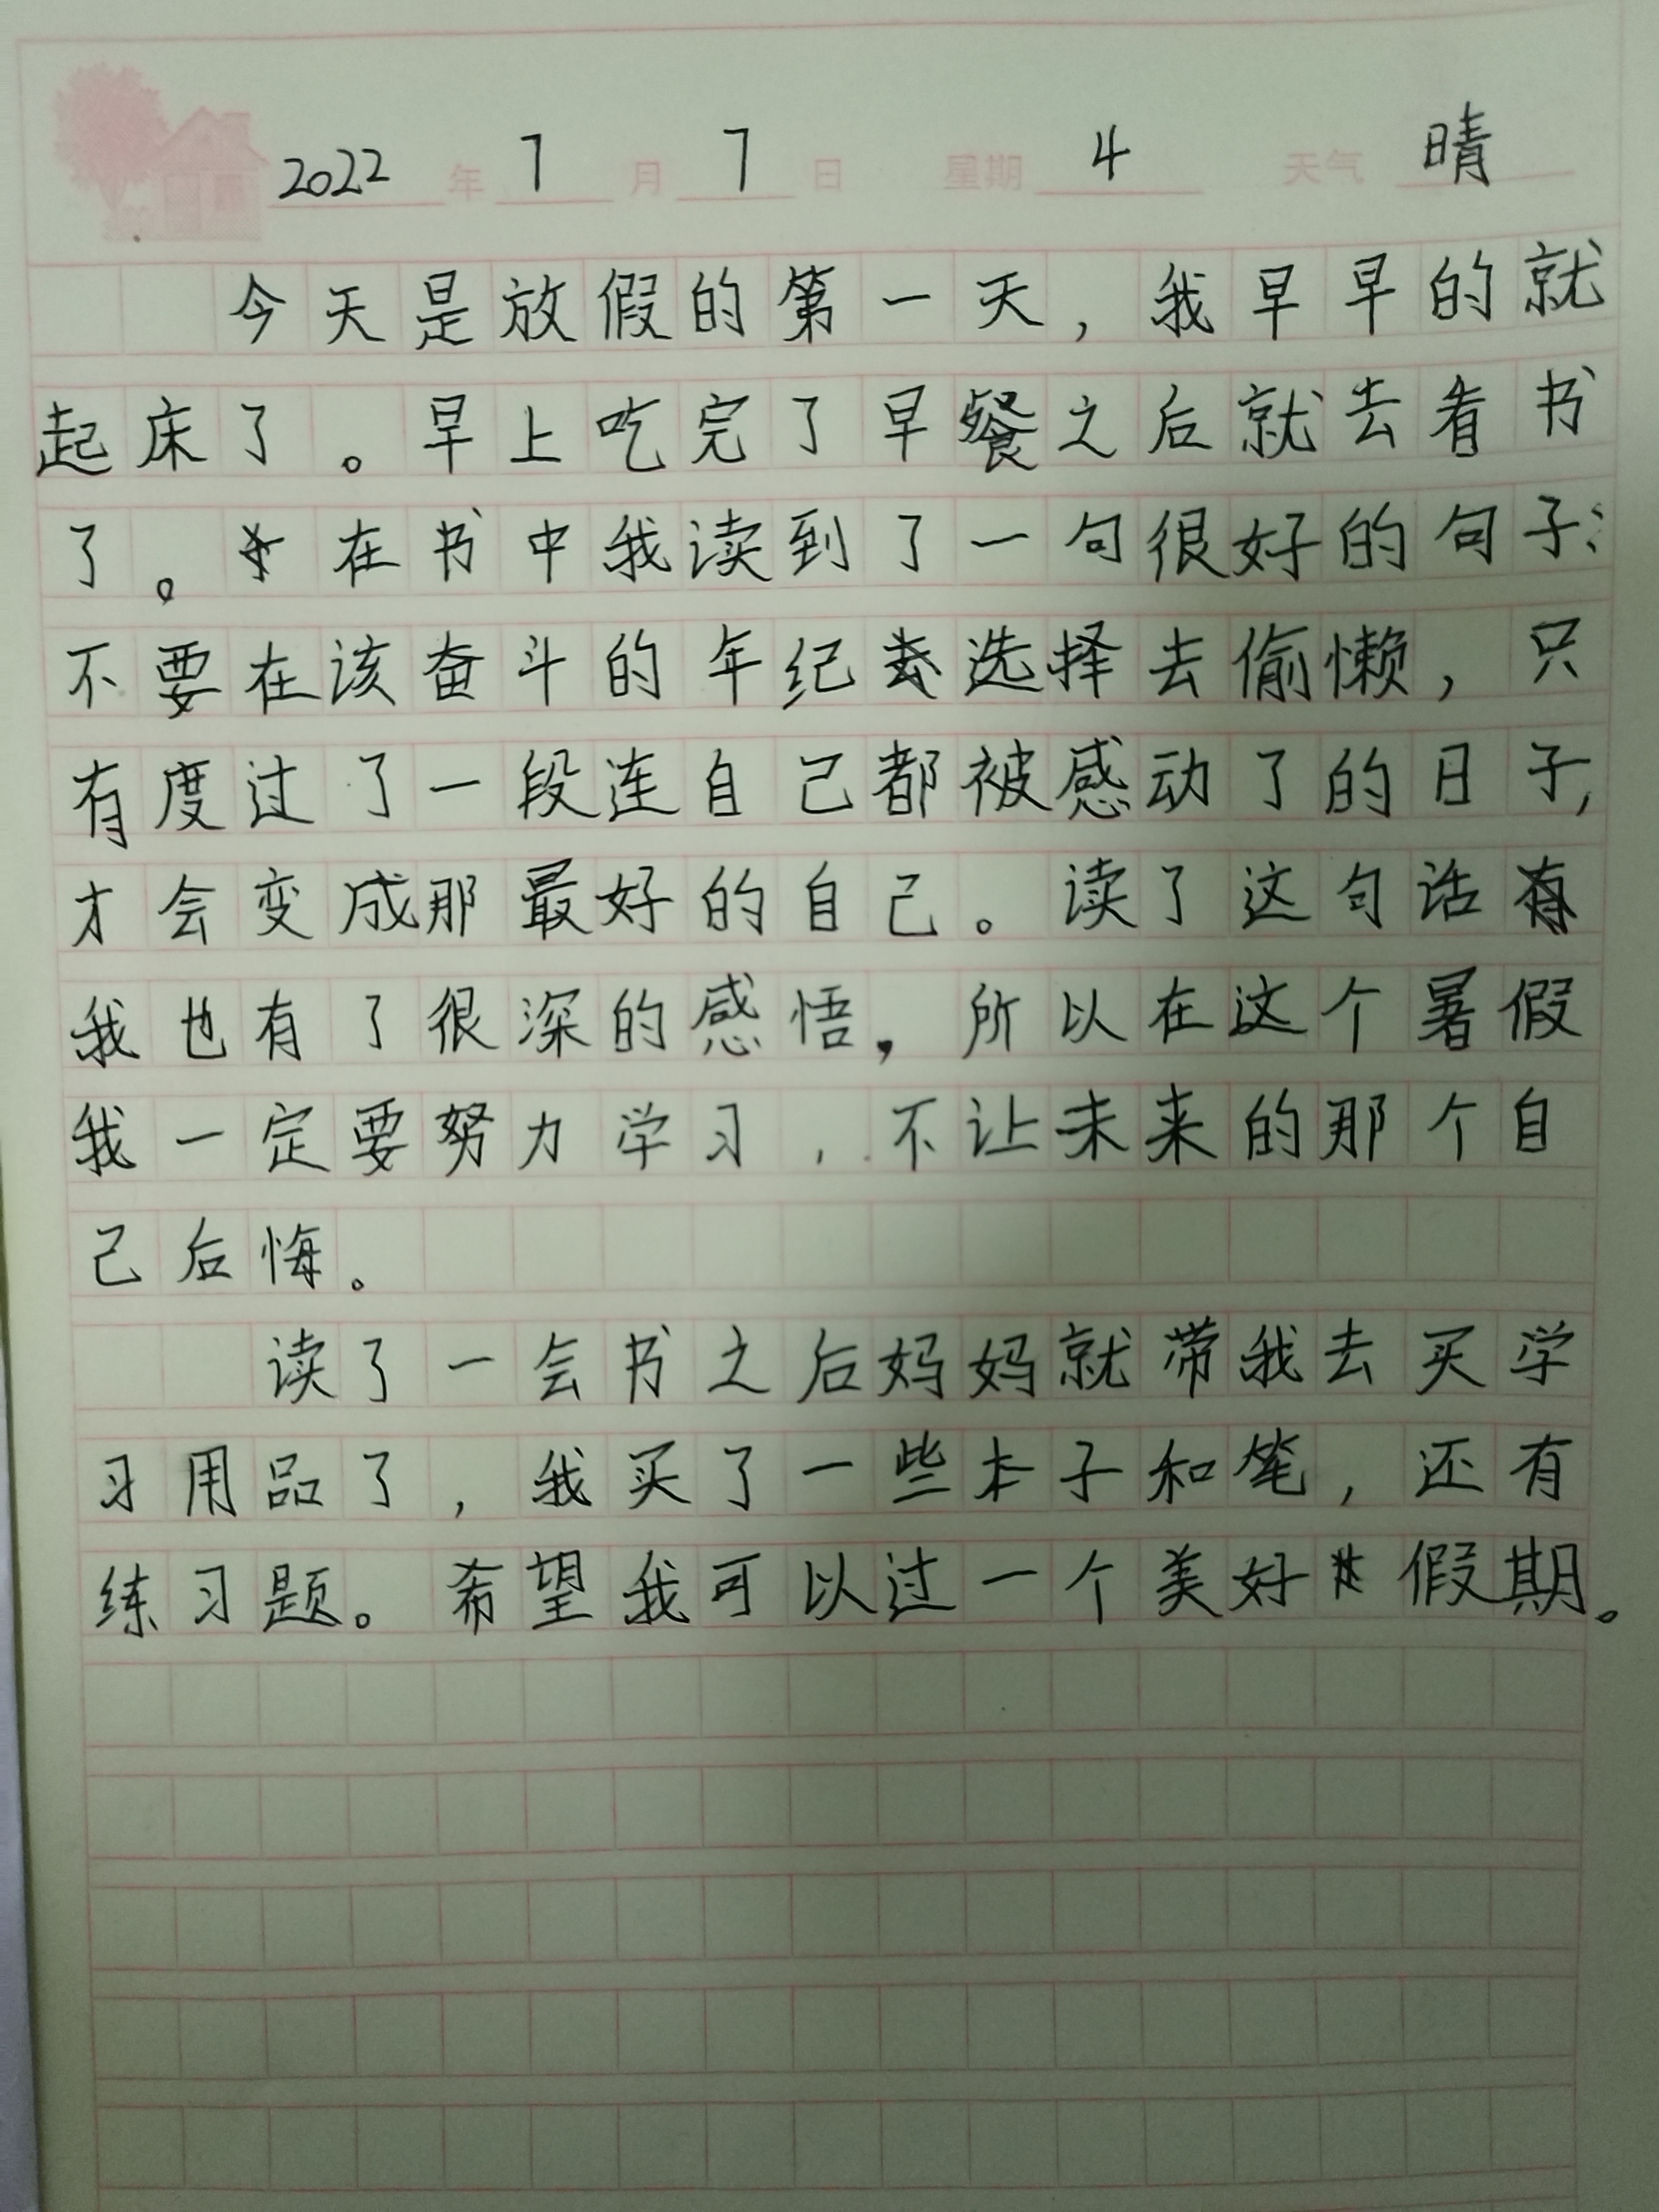 2022 年 7 月 7 日 星期 4 天气 晴
今天是放假的第一天，我早早的就
起床了。早上吃完了早餐之后就去看书
了。在书中我读到了一句很好的句子：
不要在该奋斗的年纪选择去偷懒，只
有度过了一段连自己都被感动了的日子，
才会变成那最好的自己。读了这句话
我也有了很深的感悟，所以在这个暑假
我一定要努力学习，不让未来的那个自
己后悔。
读了一会书之后妈妈就带我去买学
习用品了，我买了一些本子和笔，还有
练习题。希望我可以过一个美好假期。